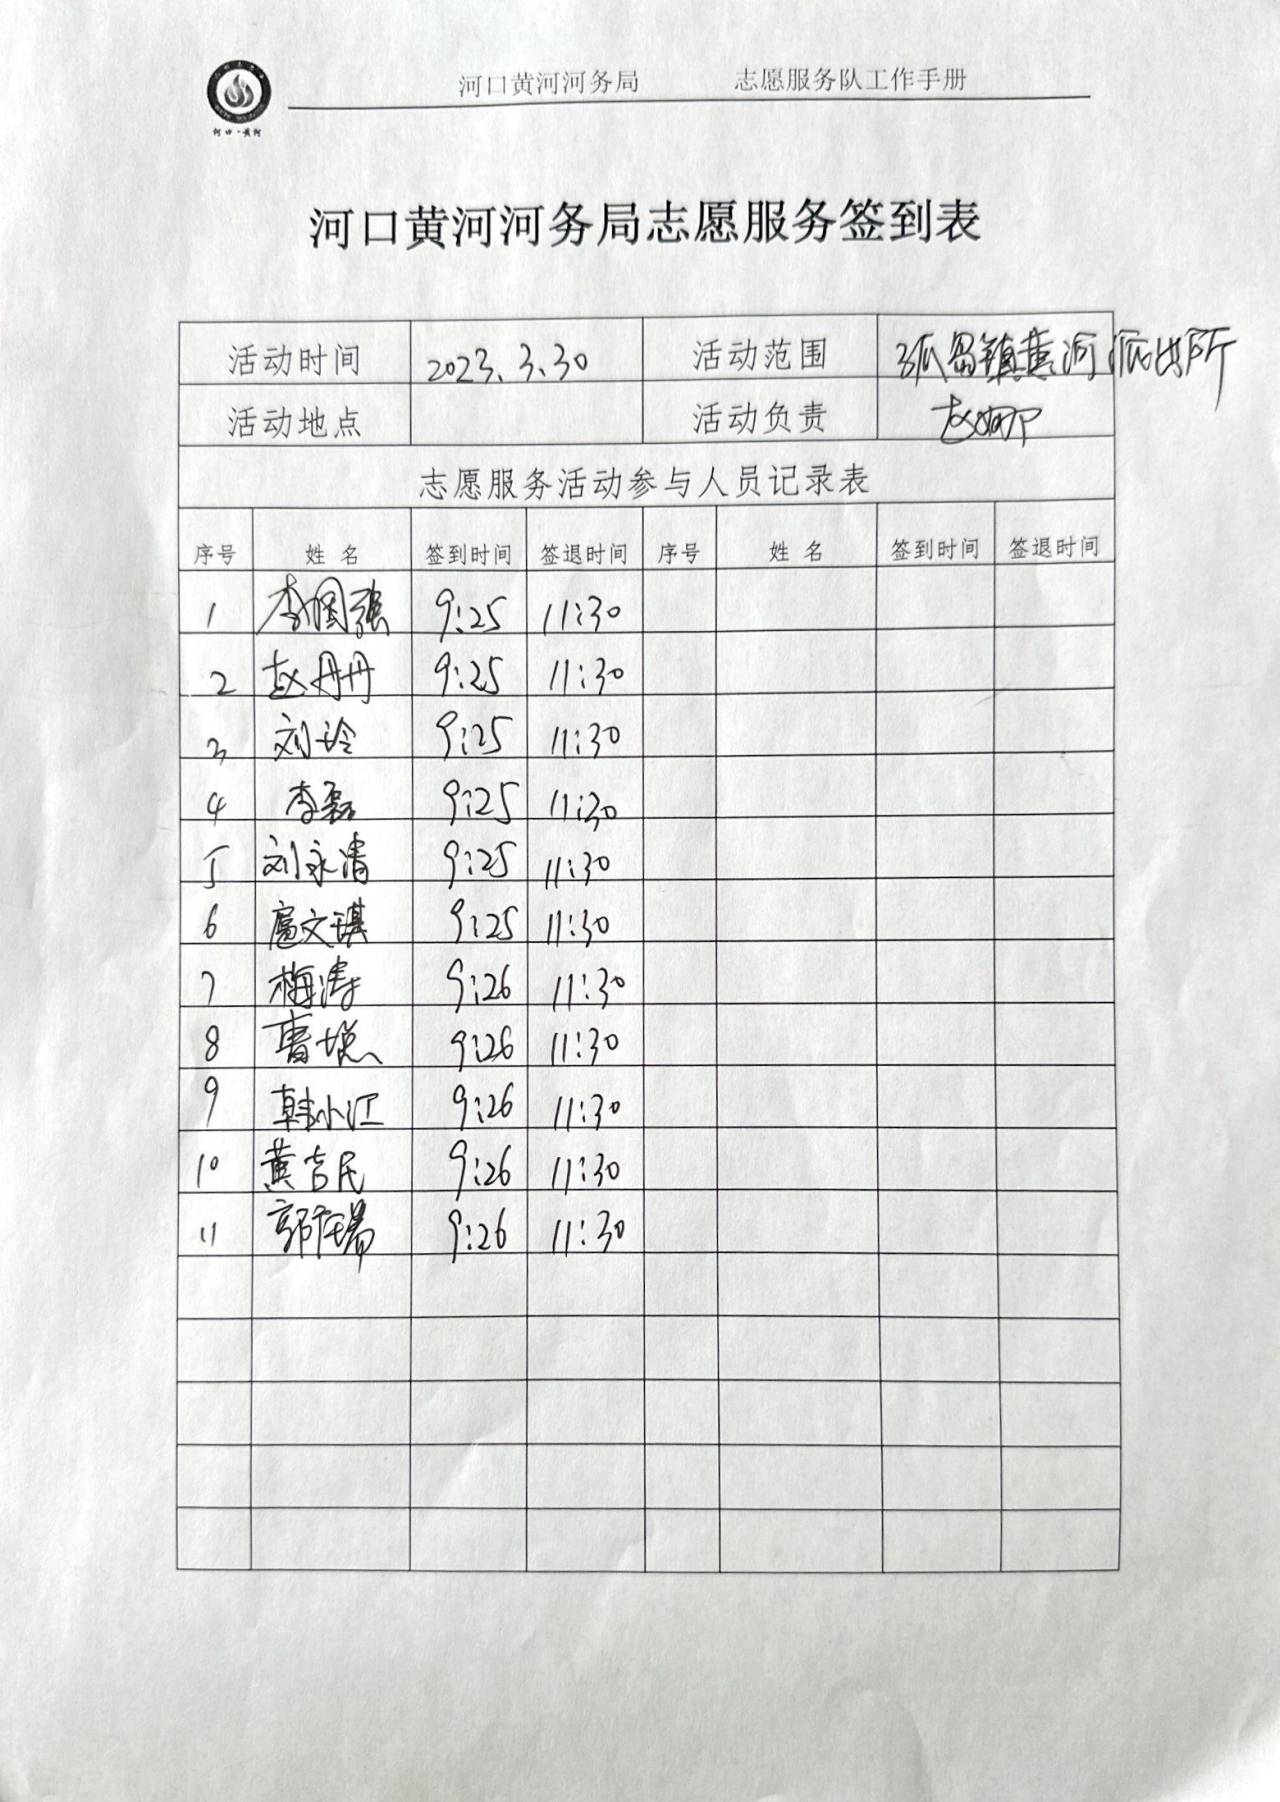 河口黄河河务局 志愿服务队工作手册
河口·黄河
河口黄河河务局志愿服务签到表
活动时间 2023.3.30 活动范围 孤岛镇黄河派出所
活动地点 活动负责 赵娜
志愿服务活动参与人员记录表
序号 姓名 签到时间 签退时间 序号 姓名 签到时间 签退时间
1 李国强 9:25 11:30
2 赵丹丹 9:25 11:30
3 刘玲 9:25 11:30
4 李磊 9:25 11:30
5 刘永清 9:25 11:30
6 扈文琪 9:25 11:30
7 梅涛 9:26 11:30
8 9:26 11:30
9 韩小江 9:26 11:30
10 黄吉民 9:26 11:30
11 9:26 11:30